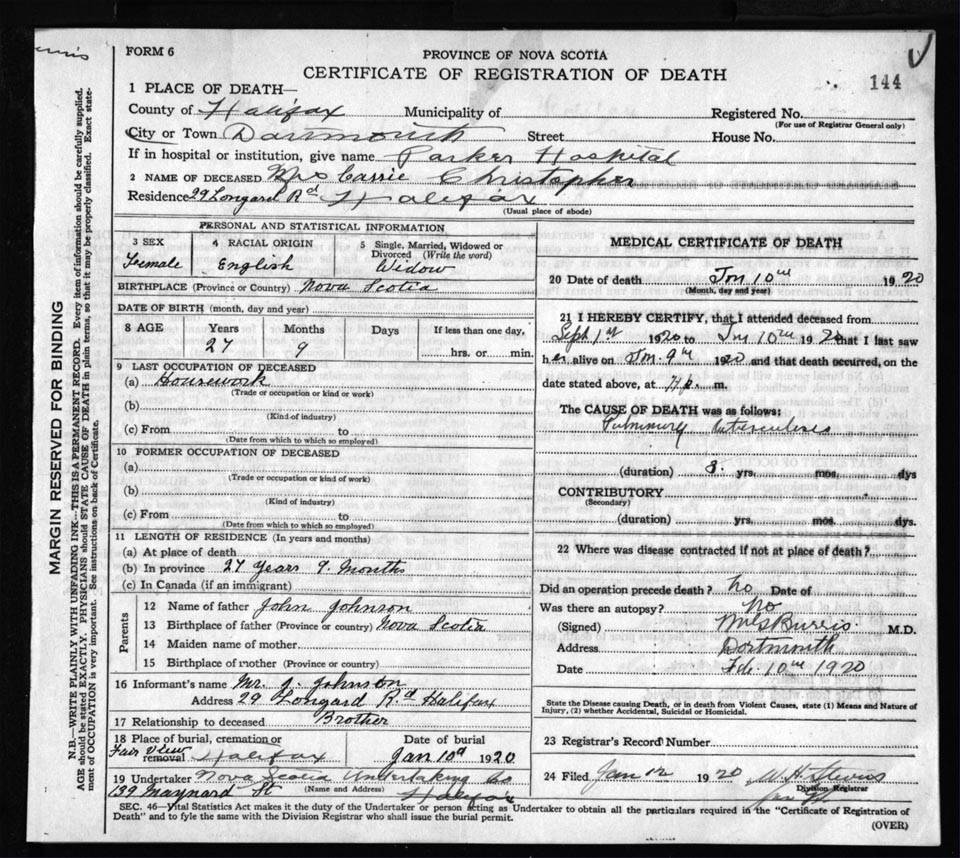 FORM 6
PROVINCE OF NOVA SCOTIA
CERTIFICATE OF REGISTRATION OF DEATH
144
1 PLACE OF DEATH—
County of Halifax Municipality of Registered No.
(For use of Registrar General only)
City or Town Dartmouth Street House No.
If in hospital or institution, give name Parker Hospital
2 NAME OF DECEASED Mrs Carrie Christopher
Residence 29 Longard Rd Halifax
(Usual place of abode)
PERSONAL AND STATISTICAL INFORMATION
3 SEX 4 RACIAL ORIGIN 5 Single, Married, Widowed or Divorced (Write the word)
Female English Widow
BIRTHPLACE (Province or Country) Nova Scotia
DATE OF BIRTH (month, day and year)
8 AGE Years Months Days If less than one day,
27 9 hrs. or min.
9 LAST OCCUPATION OF DECEASED
(a) Housework
(Trade or occupation or kind or work)
(b)
(Kind of industry)
(c) From to
(Date from which to which so employed)
10 FORMER OCCUPATION OF DECEASED
(a)
(Trade or occupation or kind of work)
(b)
(Kind of industry)
(c) From to
(Date from which to which so employed)
11 LENGTH OF RESIDENCE (In years and months)
(a) At place of death
(b) In province 27 Years 9. Months
(c) In Canada (if an immigrant)
Parents
12 Name of father John Johnson
13 Birthplace of father (Province or country) Nova Scotia
14 Maiden name of mother
15 Birthplace of mother (Province or country)
16 Informant's name Mr. J. Johnson
Address 29 Longard Rd Halifax
17 Relationship to deceased Brother
18 Place of burial, cremation or removal Date of burial
Fair View Halifax Jan 10th 1920
19 Undertaker Nova Scotia Undertaking Co
(Name and Address)
139 Maynard St Halifax
MEDICAL CERTIFICATE OF DEATH
20 Date of death Jan 10th 1920
(Month, day and year)
21 I HEREBY CERTIFY, that I attended deceased from
Sept 1st 1920 to Jan 10th 1920 that I last saw
her alive on Jan. 9th 1920 and that death occurred, on the
date stated above, at m.
The CAUSE OF DEATH was as follows:
Pulmonary tuberculosis
(duration) yrs. mos. dys
CONTRIBUTORY
(Secondary)
(duration) yrs. mos. dys.
22 Where was disease contracted if not at place of death?
Did an operation precede death? No Date of
Was there an autopsy? No
(Signed) Burris M.D.
Address Dartmouth
Date Feb. 10th 1920
State the Disease causing Death, or in death from Violent Causes, state (1) Means and Nature of
Injury, (2) whether Accidental, Suicidal or Homicidal.
23 Registrar's Record Number
24 Filed Jan 12 1920 W. H. Stevens
Division Registrar
SEC. 46—Vital Statistics Act makes it the duty of the Undertaker or person acting as Undertaker to obtain all the particulars required in the "Certificate of Registration of
Death" and to fyle the same with the Division Registrar who shall issue the burial permit.
(OVER)
MARGIN RESERVED FOR BINDING
N.B.—WRITE PLAINLY WITH UNFADING INK—THIS IS A PERMANENT RECORD. Every item of information should be carefully supplied.
AGE should be stated EXACTLY. PHYSICIANS should STATE CAUSE OF DEATH in plain terms, so that it may be properly classified. Exact state-
ment of OCCUPATION is very important. See instructions on back of Certificate.